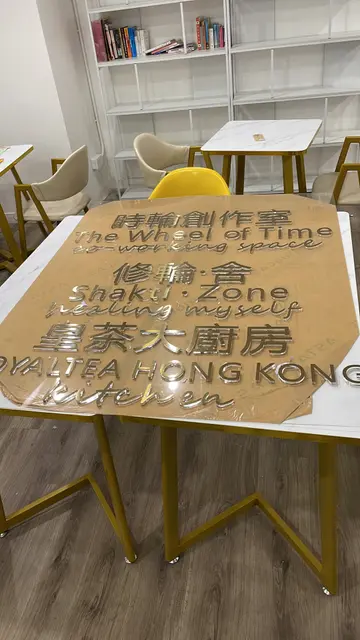 時輪創作室
The Wheel of Time
co-working space
修輪·舍
Shakti·Zone
healing myself
皇茶大廚房
OYALTEA HONG KONG
kitchen